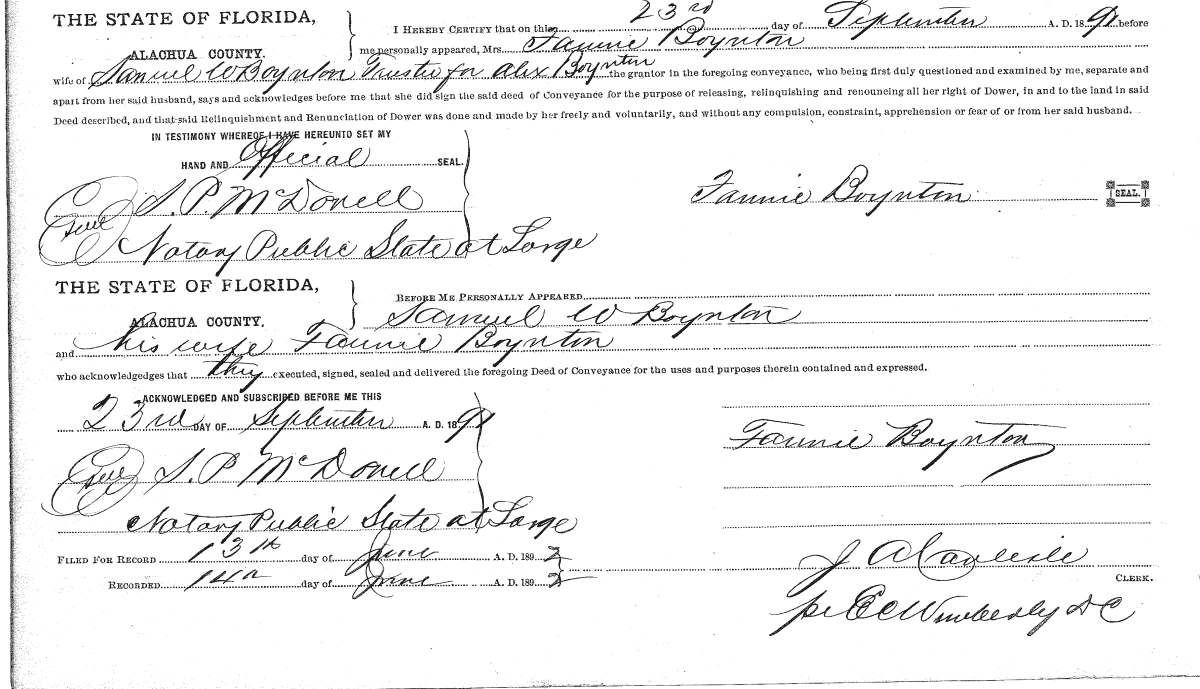 THE STATE OF FLORIDA,
ALACHUA COUNTY.
I HEREBY CERTIFY that on this 23rd day of September A. D. 1891 before
me personally appeared, Mrs. Fannie Boynton
wife of Samuel W Boynton Trustee for Alex Boynton the grantor in the foregoing conveyance, who being first duly questioned and examined by me, separate and
apart from her said husband, says and acknowledges before me that she did sign the said deed of Conveyance for the purpose of releasing, relinquishing and renouncing all her right of Dower, in and to the land in said
Deed described, and that said Relinquishment and Renunciation of Dower was done and made by her freely and voluntarily, and without any compulsion, constraint, apprehension or fear of or from her said husband.
IN TESTIMONY WHEREOF I HAVE HEREUNTO SET MY
HAND AND Official SEAL.
S. P. McDonell
Seal
Fannie Boynton SEAL.
Notary Public State at Large
THE STATE OF FLORIDA,
ALACHUA COUNTY.
BEFORE ME PERSONALLY APPEARED
Samuel W Boynton
and his wife Fannie Boynton
who acknowledgedges that they executed, signed, sealed and delivered the foregoing Deed of Conveyance for the uses and purposes therein contained and expressed.
ACKNOWLEDGED AND SUBSCRIBED BEFORE ME THIS
23rd DAY OF September A. D. 1891
Fannie Boynton
Seal S. P McDonell
Notary Public State at Large
FILED FOR RECORD 13th day of June A. D. 1892
RECORDED 14th day of June A. D. 1892
J A Carlisle
CLERK.
per E C Wimberly D C